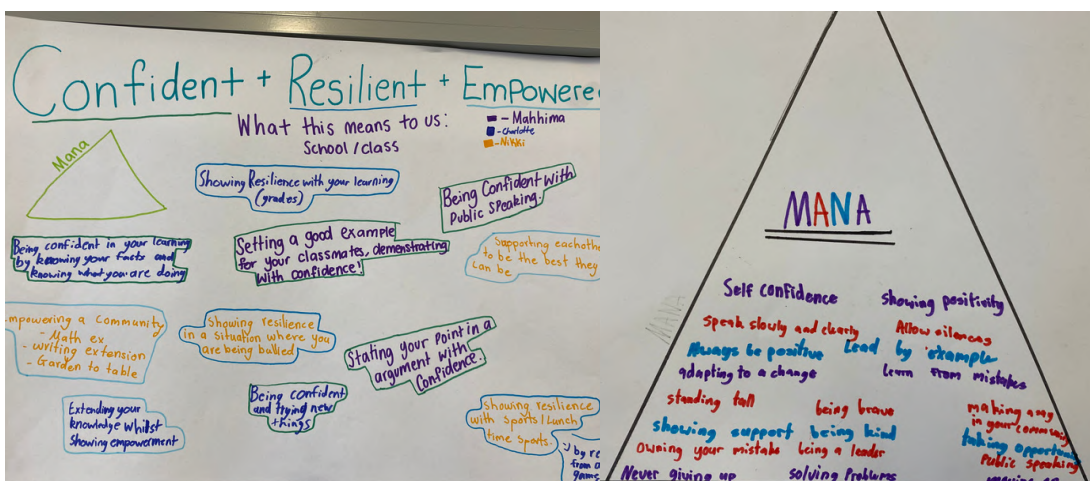 Confident + Resilient + Empowere
What this means to us:
School/class
- Mahhima
- Charlotte
- Nikki
Mana
Showing Resilience with your learning
(grades)
Being Confident with
Public Speaking.
Being confident in your learning
by knowing your facts and
knowing what you are doing
Setting a good example
for your classmates, demenstrating
with confidence!
Supporting eachothe
to be the best they
can be
mpowering a Community
- Math ex
- writing extension
- Garden to table
Showing resilience
in a Situation where you
are being bullied
Stating your Point in a
argument with
Confidence.
Being confident
and trying new
things
Extending your
knowledge whilst
showing empowerment
Showing resilience
with Sports/Lunch
time Sports.
by re
from o
game
MANA
MANA
Self confidence
showing positivity
speak slowly and clearly
Allow silences
Always be positive
Lead by example
adapting to a change
Learn from mistakes
standing tall
being brave
making a
in your community
showing support
being kind
taking opportun
owning your mistake
being a leader
Public speaking
Never giving up
solving Problems